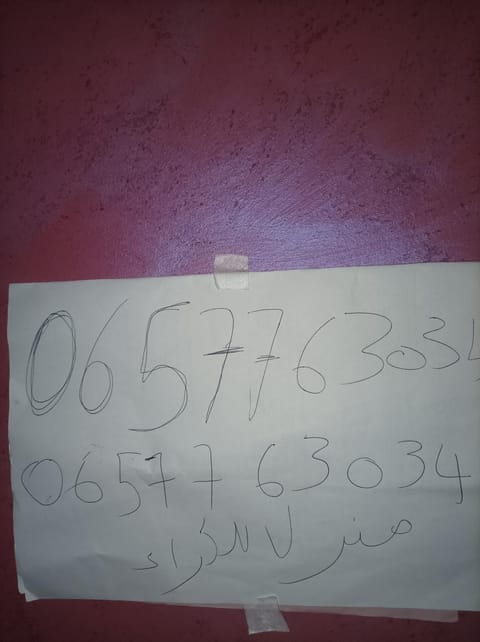 0657763034
06577 63034
منزل للكراء